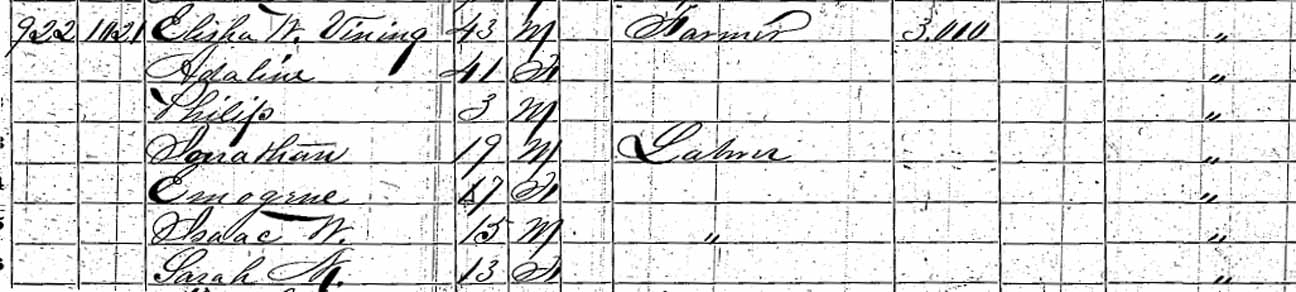 922 1021 Elisha W. Vining 43 M Farmer 3.000 "
Adaline 41 F "
Philip 3 M "
Jonathan 19 M Labrer "
Emogene 17 F "
Isaac W. 15 M " "
Sarah 13 F "